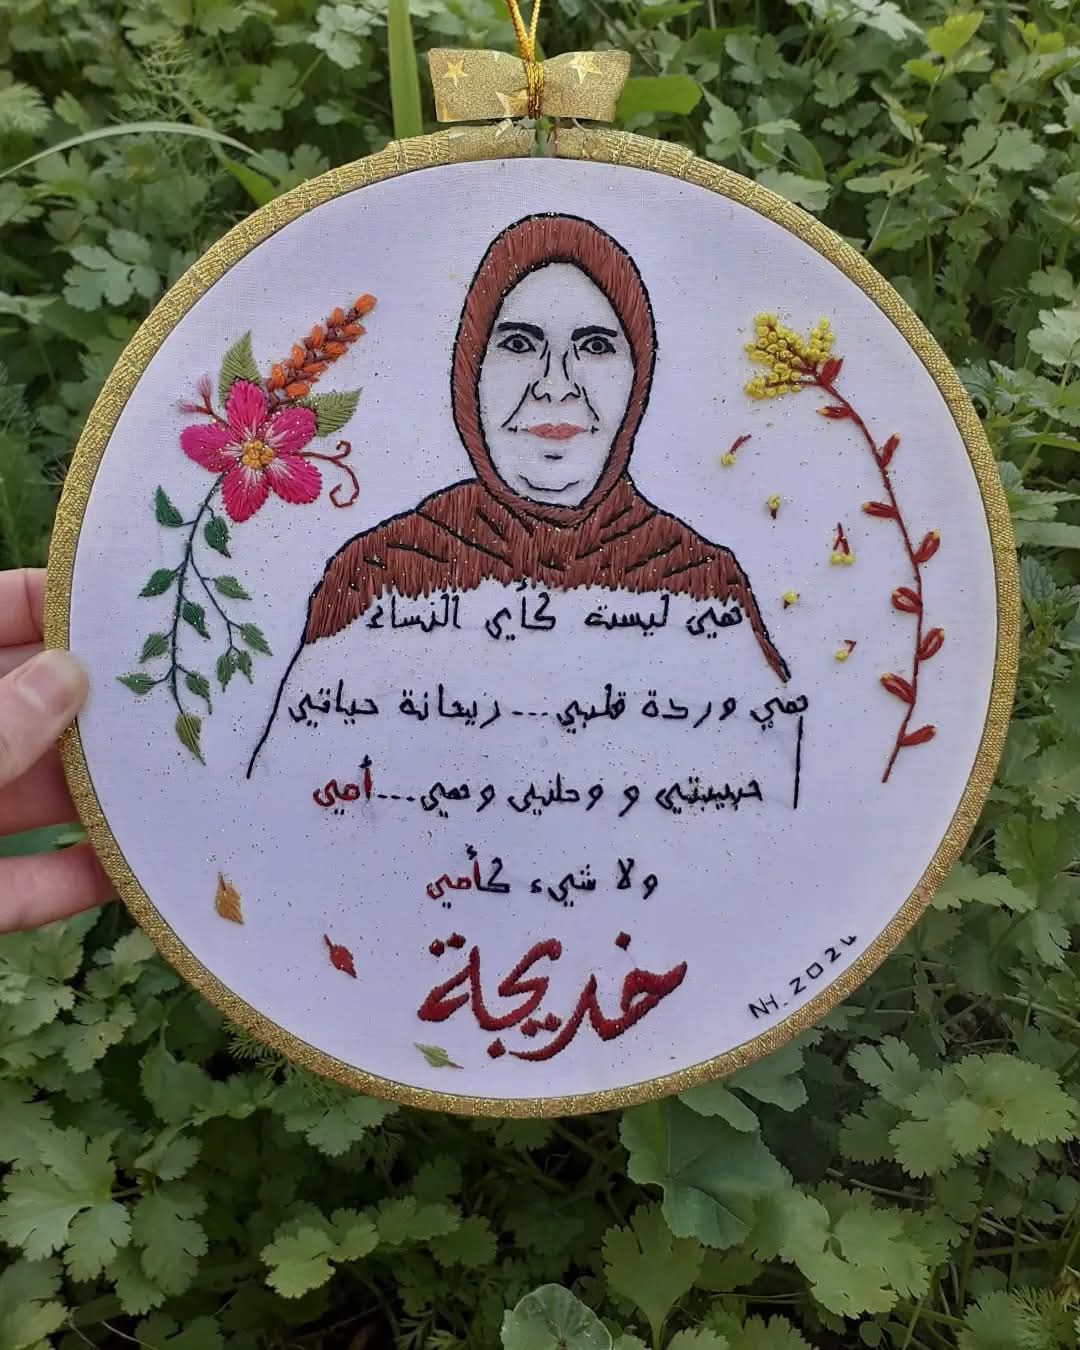 هي ليست كأي النساء
هي وردة قلبي... ريحانة حياتي
حبيبتي و وطني وهي... أمي
ولا شيء كأمي
خديجة
NH_2024